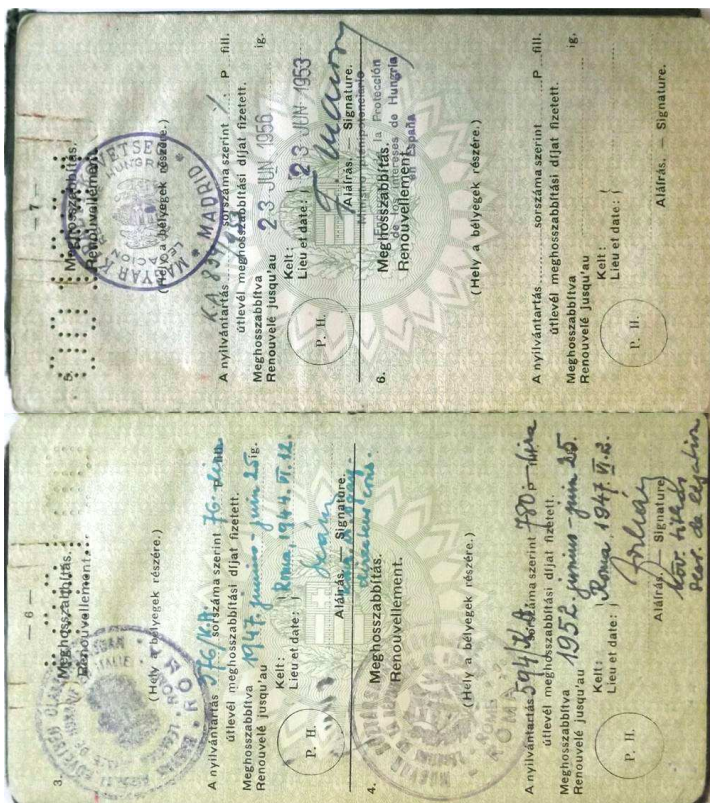 — 6 —
3.
Meghosszabbítás.
Renouvellement.
(Hely a bélyegek részére.)
A nyilvántartás 576/K.P. sorszáma szerint 76.- lira
útlevél meghosszabbítási díjat fizetett.
Meghosszabbítva
Renouvelé jusqu'au 1947. június - juin 25 ig.
Kelt:
Lieu et date: Roma, 1944. VI. 12.
P. H.
Aláírás. — Signature.
4.
Meghosszabbítás.
Renouvellement.
(Hely a bélyegek részére.)
A nyilvántartás 594/ sorszáma szerint 780 P lira
útlevél meghosszabbítási díjat fizetett.
Meghosszabbítva
Renouvelé jusqu'au 1952. június - juin 25.
Kelt:
Lieu et date: Roma, 1947. VI. 2.
P. H.
Aláírás. — Signature
Köv. titkár
secr. de légation
— 7 —
5.
Meghosszabbítás.
Renouvellement.
MADRID
(Hely a bélyegek részére.)
A nyilvántartás sorszáma szerint P fill.
útlevél meghosszabbítási díjat fizetett.
Meghosszabbítva
Renouvelé jusqu'au 23 JUN 1956 ig.
Kelt:
Lieu et date: 23 JUN 1953
P. H.
Aláírás. — Signature.
Ministro plenipotenciario
Encargado de la Protección
de los Intereses de Hungría
en España
6.
Meghosszabbítás.
Renouvellement.
(Hely a bélyegek részére.)
A nyilvántartás sorszáma szerint P fill.
útlevél meghosszabbítási díjat fizetett.
Meghosszabbítva
Renouvelé jusqu'au ig.
Kelt:
Lieu et date:
P. H.
Aláírás. — Signature.